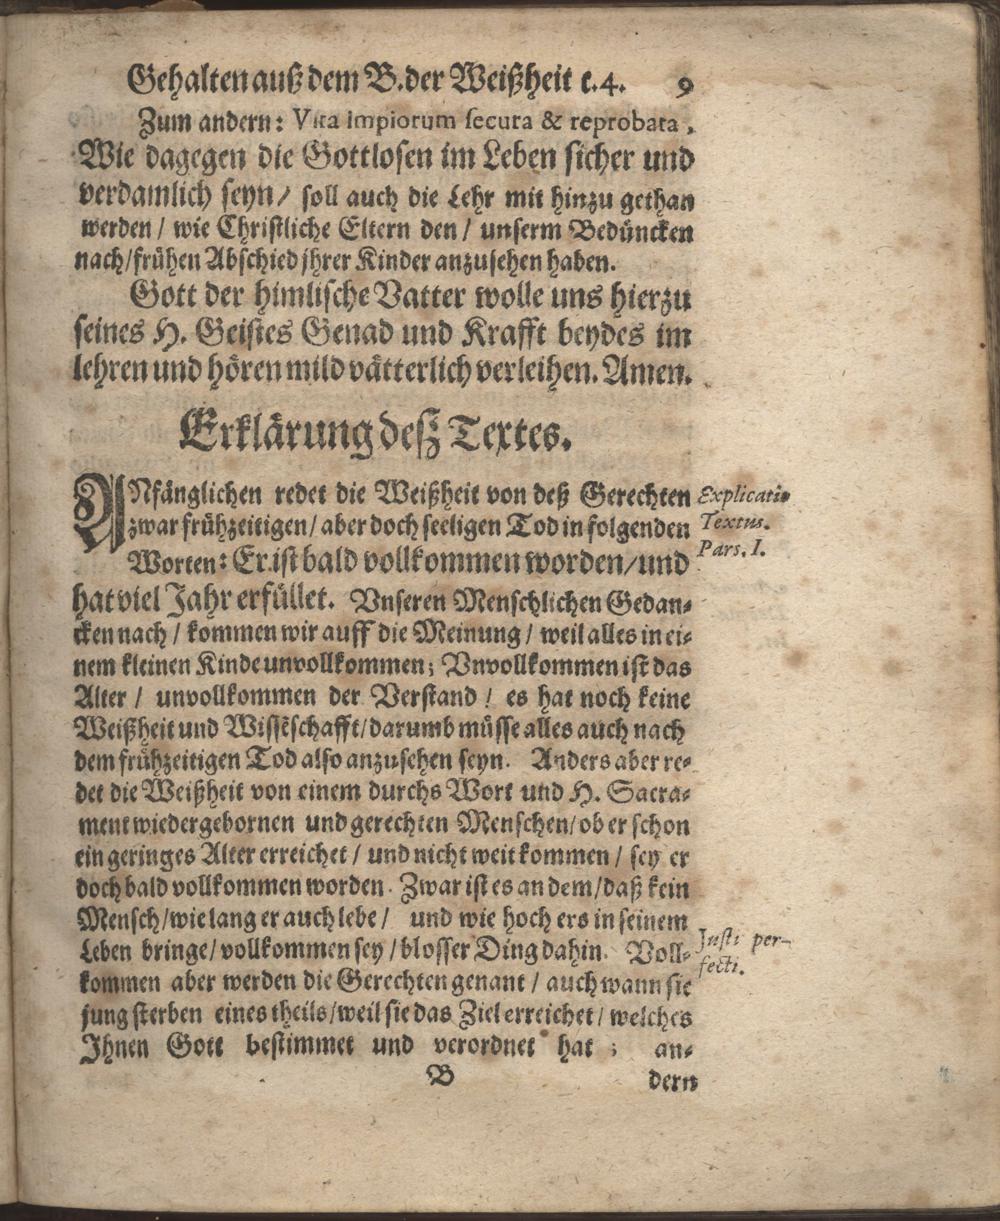 Gehalten auß dem B. der Weißheit c. 4. 9
Zum andern: Vita impiorum secura & reprobata,
Wie dagegen die Gottlosen im Leben sicher und
verdamlich seyn/ soll auch die Lehr mit hinzu gethan
werden / wie Christliche Eltern den / unserm Bedüncken
nach/frühen Abschied jhrer Kinder anzusehen haben.
Gott der himlische Vatter wolle uns hierzu
seines H. Geistes Genad und Krafft beydes im
lehren und hören mild vätterlich verleihen. Amen.
Erklärung deß Textes.
ANfänglichen redet die Weißheit von deß Gerechten
zwar frühzeitigen/ aber doch seeligen Tod in folgenden
Worten: Er ist bald vollkommen worden/und
hat viel Jahr erfüllet. Vnseren Menschlichen Gedan⸗
cken nach / kommen wir auff die Meinung / weil alles in ei⸗
nem kleinen Kinde unvollkommen; Vnvollkommen ist das
Alter / unvollkommen der Verstand / es hat noch keine
Weißheit und Wissēschafft/darumb müsse alles auch nach
dem frühzeitigen Tod also anzusehen seyn. Anders aber re⸗
det die Weißheit von einem durchs Wort und H. Sacra⸗
ment wiedergebornen und gerechten Menschen/ob er schon
ein geringes Alter erreichet / und nicht weit kommen / sey er
doch bald vollkommen worden. Zwar ist es an dem/daß kein
Mensch/wie lang er auch lebe / und wie hoch ers in seinem
Leben bringe/vollkommen sey / blosser Ding dahin. Voll⸗
kommen aber werden die Gerechten genant / auch wann sie
jung sterben eines theils/weil sie das Ziel erreichet / welches
Jhnen Gott bestimmet und verordnet hat ; an⸗
B dern
Explicatio
Textus.
Pars. I.
Justi per-
fecti.